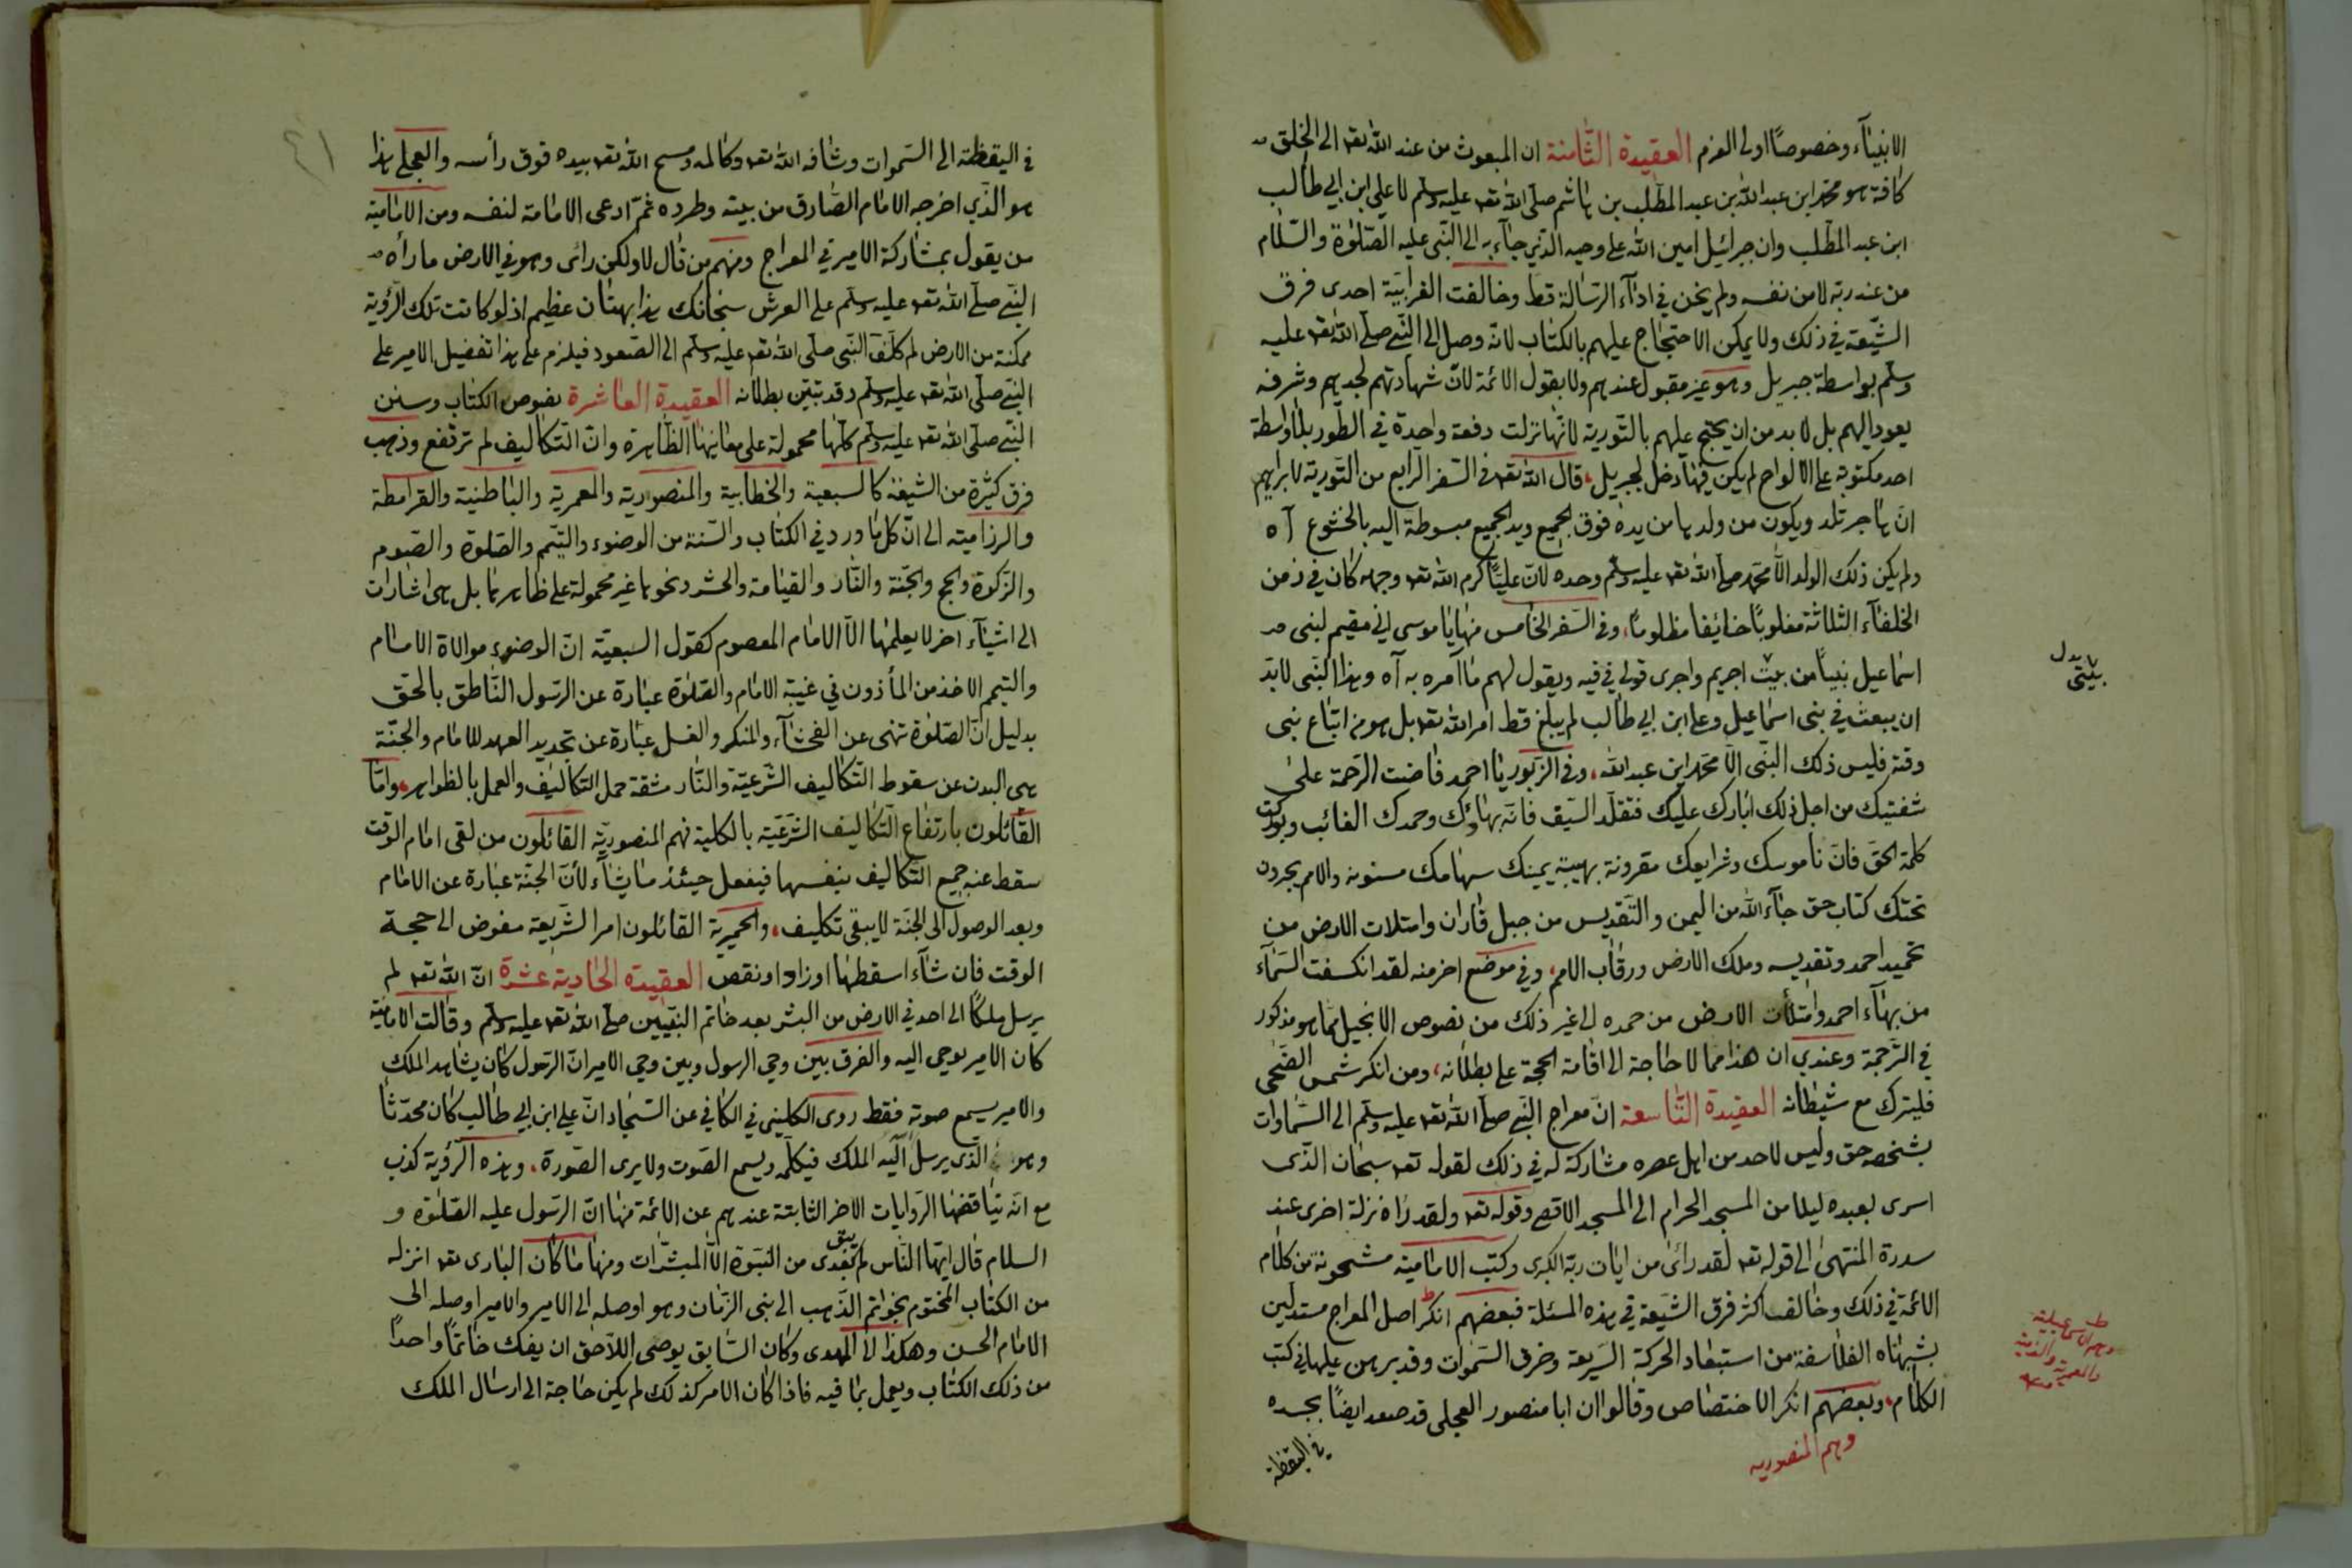 الانبيآء وخصوصًا اولى العزم العقيدة الثامنة ان المبعوث من عند الله تعه الى الخلق
كافة هو محمد ابن عبد الله بن عبد المطلب بن هاشم صلى الله تعه عليه وسلم لا على ابن ابي طالب
ابن عبد المطلب وان جبرائيل امين الله على وحيه الذي جآء به الى النبي عليه الصلوة والسلام
من عند ربه لا من نفسه ولم يخن في ادآء الرسالة قط وخالفت الغرابية احدى فرق
الشيعة في ذلك ولا يمكن الاحتجاج عليهم بالكتاب لانه وصل الى النبي صلى الله تعه عليه
وسلم بواسطة جبريل وهو غير مقبول عندهم ولا بقول الائمة لان شهادتهم لجدهم وشرفه
يعود اليهم بل لا بد من ان يحتج عليهم بالتورية لانها نزلت دفعة واحدة في الطور بلا واسطة
احد مكتوبة على الالواح لم يكن فيها دخل لجبريل، قال الله تعه في السفر الرابع من التورية لابراهيم
ان هاجر تلد ويكون من ولدها من يده فوق الجميع ويد الجميع مبسوطة اليه بالخشوع آه
ولم يكن ذلك الولد الا محمد صلى الله تعه عليه وسلم وحده لان عليًّا كرم الله تعه وجهه كان في زمن
الخلفآء الثلاثة مغلوبًا خائفا مظلومًا، وفي السفر الخامس منها يا موسى اني مقيم لبني
اسماعيل نبيًا من بيت اجريم واجرى قولي في فيه ويقول لهم ما آمره به آه وهذا النبي لا بد
ان يبعث في بنى اسماعيل وعلى ابن ابي طالب لم يبلغ قط امر الله تعه بل هو من اتباع نبى
وقته فليس ذلك النبي الا محمد ابن عبد الله، وفي الزبور يا احمد فاضت الرحمة على
شفتيك من اجل ذلك ابارك عليك فتقلد السيف فانه بهاؤك وحمدك الغائب وبوركت
كلمة الحق فان ناموسك وشرايعك مقرونة بهيبة يمينك سهامك مسنونة والامم يجرون
تحتك كتاب حق جآء الله من اليمن والتقديس من جبل فاران وامتلات الارض من
تحميد احمد وتقديسه وملك الارض ورقاب الامم، وفي موضع اخر منه لقد انكسفت السمآء
من بهآء احمد وامتلأت الارض من حمده الى غير ذلك من نصوص الانجيل مما هو مذكور
في الترجمة وعندي ان هذا مما لا حاجة الى اقامة الحجة على بطلانه، ومن انكر شمس الضحى
فليترك مع شيطانه العقيدة التاسعة ان معراج النبي صلى الله تعه عليه وسلم الى السماوات
بشخصه حق وليس لاحد من اهل عصره مشاركة له في ذلك لقوله تعه سبحان الذى
اسرى بعبده ليلا من المسجد الحرام الى المسجد الاقصى وقوله تعه ولقد راه نزلة اخرى عند
سدرة المنتهى الى قوله تعه لقد رائ من ايات ربه الكبرى وكتب الامامية مشحونة من كلام
الائمة في ذلك وخالف اكثر فرق الشيعة في هذه المسئلة فبعضهم انكر اصل المعراج مستدلين
بشبهاة الفلاسفة من استبعاد الحركة السريعة وخرق السموات وقد برهن عليها في كتب
الكلام، وبعضهم انكر الاختصاص وقالوا ان ابا منصور العجلى قد صعد ايضًا بجسده
وهم المنصوريه
في اليقظة
بيتى
بدل
وهم الاسماعيلية
في اليقظة الى السموات وشافه الله تعه وكالمه ومسح الله تعه بيده فوق رأسه والعجلى هذا
هو الذي اخرجه الامام الصادق من بيته وطرده ثم ادعى الامامة لنفسه ومن الامامية
من يقول بمشاركة الامير في المعراج ومنهم من قال لا ولكن رائ وهو في الارض ما رأه
النبي صلى الله تعه عليه وسلم على العرش سبحانك هذا بهتان عظيم اذ لو كانت تلك الرؤية
ممكنة من الارض لم كلف النبي صلى الله تعه عليه وسلم الى الصعود فيلزم على هذا تفضيل الامير على
النبي صلى الله تعه عليه وسلم وقد تبين بطلانه العقيدة العاشرة نصوص الكتاب وسنن
النبي صلى الله تعه عليه وسلم كلها محمولة على معانيها الظاهرة وان التكاليف لم ترتفع وذهب
فرق كثيرة من الشيعة كالسبعية والخطابية والمنصورية والمعمرية والباطنية والقرامطة
والرزامية الى ان كل ما ورد في الكتاب والسنة من الوضوء والتيمم والصلوة والصوم
والزكوة والحج والجنة والنار والقيامة والحشر ونحوها غير محمولة على ظاهرها بل هى اشارات
الى اشيآء اخر لا يعلمها الا الامام المعصوم كقول السبعية ان الوضوء موالاة الامام
والتيمم الاخذ من المأذون في غيبة الامام والصلوة عبارة عن الرسول الناطق بالحق
بدليل ان الصلوة تنهى عن الفحشآء والمنكر والغسل عبارة عن تجديد العهد للامام والجنة
هى البدن عن سقوط التكاليف الشرعية والنار مشقة حمل التكاليف والعمل بالظواهر، واما
القائلون بارتفاع التكاليف الشرعية بالكلية فهم المنصورية القائلون من لقى امام الوقت
سقط عنه جميع التكاليف بنفسها فيفعل حينئذ ما يشآء لأن الجنة عبارة عن الامام
وبعد الوصول الى الجنة لا يبقى تكليف، والحميرية القائلون امر الشريعة مفوض الى حجة
الوقت فان شآء اسقطها او زاد او نقص العقيدة الحادية عشرة ان الله تعه لم
يرسل ملكًا الى احد في الارض من البشر بعد خاتم النبيين صلى الله تعه عليه وسلم وقالت الامامية
كان الامير يوحى اليه والفرق بين وحى الرسول وبين وحى الامير ان الرسول كان يشاهد الملك
والامير يسمع صوته فقط روى الكلينى في الكافي عن السجاد ان على ابن ابي طالب كان محدثا
وهو الذى يرسل اليه الملك فيكلمه ويسمع الصوت ولا يرى الصورة، وهذه الرؤية كذب
مع انه يناقضها الروايات الاخر الثابتة عندهم عن الائمة منها ان الرسول عليه الصلوة و
السلام قال ايها الناس لم يبق بعدى من النبوة الا المبشرات ومنها ما كان البارى تعه انزله
من الكتاب المختوم بخواتم الذهب الى نبى الزمان وهو اوصله الى الامير والامير اوصله الى
الامام الحسن وهكذا الى المهدى وكان السابق يوصى اللاحق ان يفك خاتمًا واحدًا
من ذلك الكتاب ويعمل بما فيه فاذا كان الامر كذلك لم يكن حاجة الى ارسال الملك